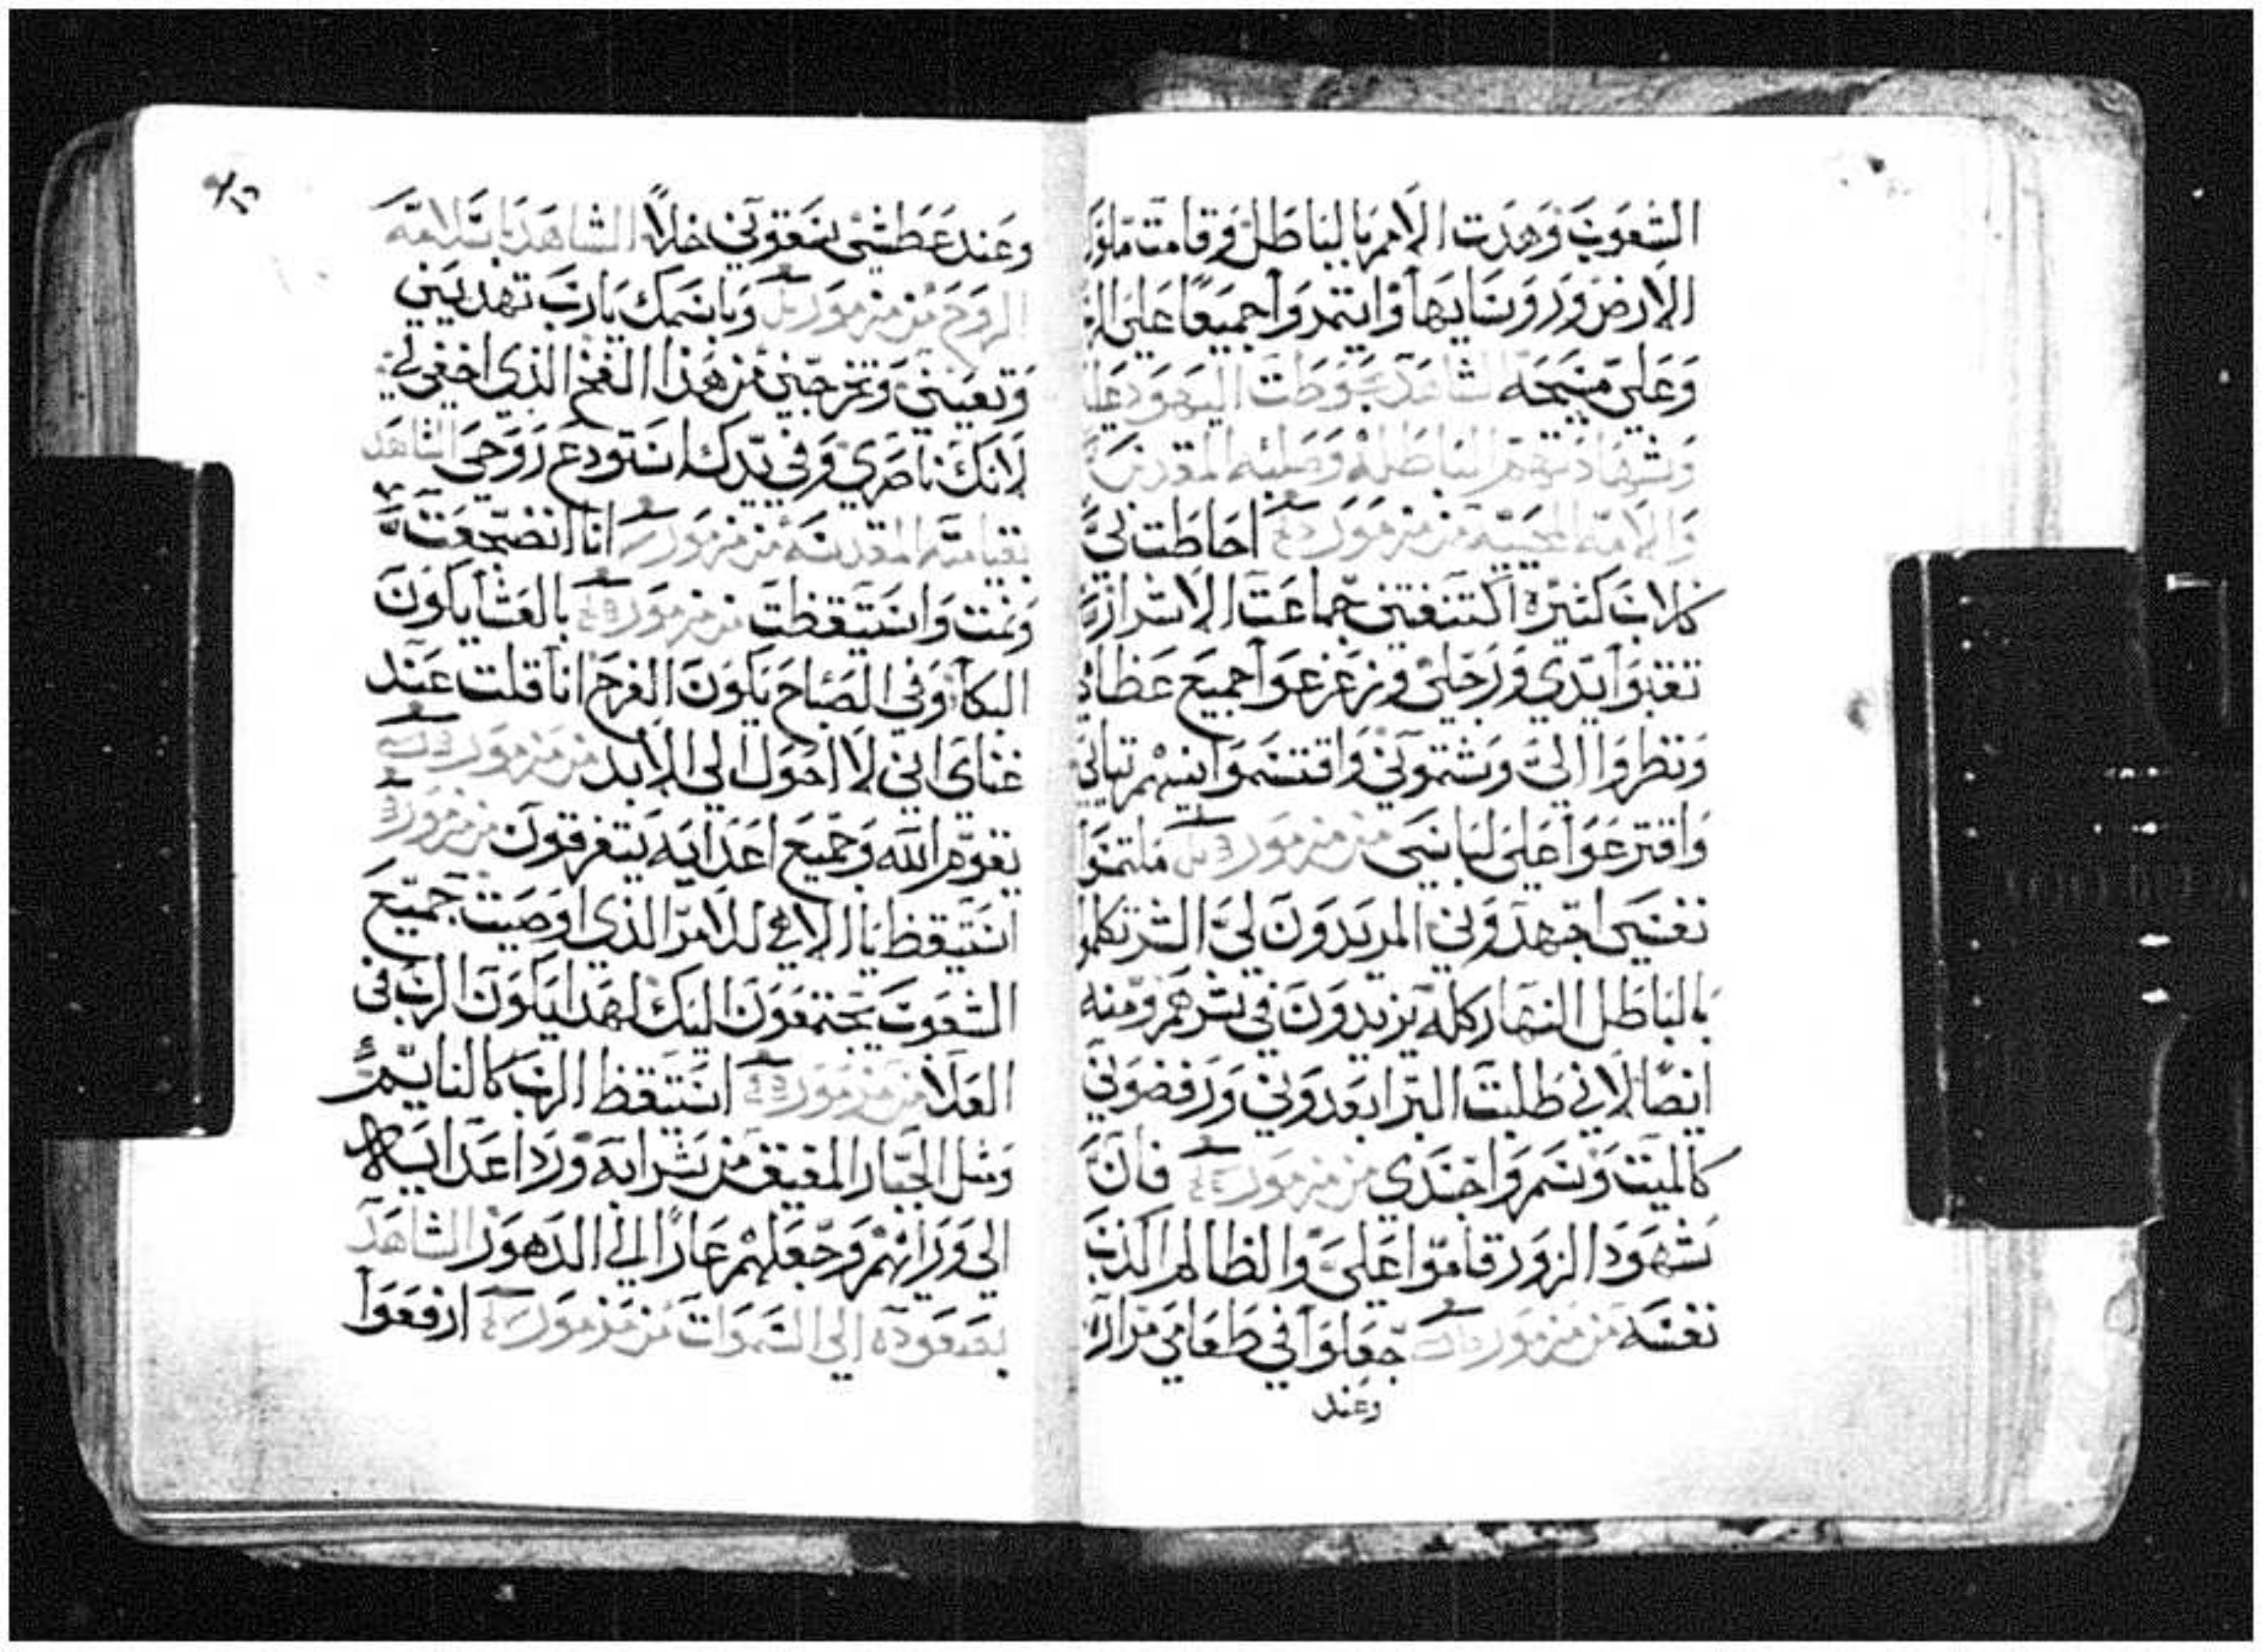 الشعوب وهدت الامم بالباطل وقامت ملوك
الارض وروسايها وايتمروا جميعا على الرب
وعلى مسيحه الشاهد اليهود عليه
وشهادتهم الباطله وصلبه المقدس
والامه المحييه من مزمور احاطت بي
كلاب كثيره اكتنفتني جماعت الاشرار
تقبوا يدي ورجلي وزعزعوا جميع عظامي
ونظروا الي وشتموني واقتسموا بينهم تيابي
واقترعوا على لباسي من مزمور ملتمسوا
نفسي اجهدوني المريدون لي الشر تكلموا
بالباطل النهار كله يزيدون في شرهم ومنه
ايضا لاني طلبت البر ابعدوني ورفضوني
كالميت وسمروا جسدي من مزمور فان
شهود الزور قاموا علي والظالم الكذب
نفسه من مزمور جعلوا في طعامي مرارة
وعند
وعند عطشي سقوني خلا الشاهد بتلامه
الروح من مزمور وباسمك يارب تهديني
وتعينني وتخرجني من هذا الفخ الذي اخفي لي
لانك ناصري وفي يدك استودع روحي الشاهد
بقيامته المقدسه من مزمور انا انضجعت
ونمت واستيقظت من مزمور بالعشا يكون
البكا وفي الصباح يكون الفرح انا قلت عند
غناي اني لا احول الى الابد من مزمور
يقوم الله وجميع اعدايه يتفرقون من مزمور
استيقظ يا الاهي للامر الذي اوصيت جميع
الشعوب يجتمعون اليك لهدا يكون الرب في
العلا من مزمور استيقظ الرب كالنايم
ومثل الجبار المفيق من شرابه ورد اعدايه
الى ورايهم وجعلهم عارا الى الدهور الشاهد
بصعوده الى السموات من مزمور ارفعوا